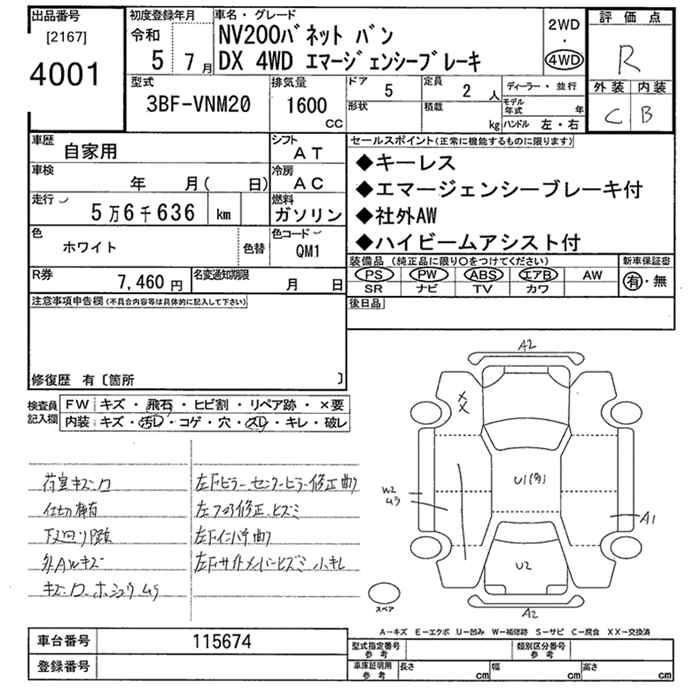 出品番号
[2167]
4001
初度登録年月
令和
5 7月
車名・グレード
NV200バネット バン
DX 4WD エマージェンシーブレーキ
2WD
・
4WD
評価点
R
外装 内装
C B
型式
3BF-VNM20
排気量
1600
CC
ドア
5
定員
2 人
形状
積載
kg
ディーラー・並行
モデル年式 年
ハンドル 左・右
車歴
自家用
シフト
AT
車検
年 月( 日)
冷房
AC
走行
5万6千636 km
燃料
ガソリン
色
ホワイト
色替
色コード
QM1
R券
7,460円
名変通知期限
月 日
セールスポイント(正常に機能するものに限ります)
◆キーレス
◆エマージェンシーブレーキ付
◆社外AW
◆ハイビームアシスト付
装備品 (純正品に限り○をつけてください)
新車保証書
PS PW ABS エアB AW
有・無
SR ナビ TV カワ
後日品
注意事項申告欄(不具合内容等は具体的に記入して下さい)
修復歴 有〔箇所 〕
検査員記入欄
FW キズ・飛石・ヒビ割・リペア跡・×要
内装 キズ・汚レ・コゲ・穴・スレ・キレ・破レ
荷室キズ・穴
仕切
下廻り
外AWキズ
キズ・
左Fピラー センターピラー修正曲
左フロア修正、ヒズミ
左Fインパネ曲
左Fサイドメンバーヒズミ 小キレ
A2
XX
U1(多)
W2
U3
A1
U2
A2
スペア
A-キズ E-エクボ U-凹み W-補修跡 S-サビ C-腐食 XX-交換済
車台番号
115674
登録番号
型式指定番号
参考
類別区分番号
参考
車庫証明用
参考
長さ cm 幅 cm 高さ cm